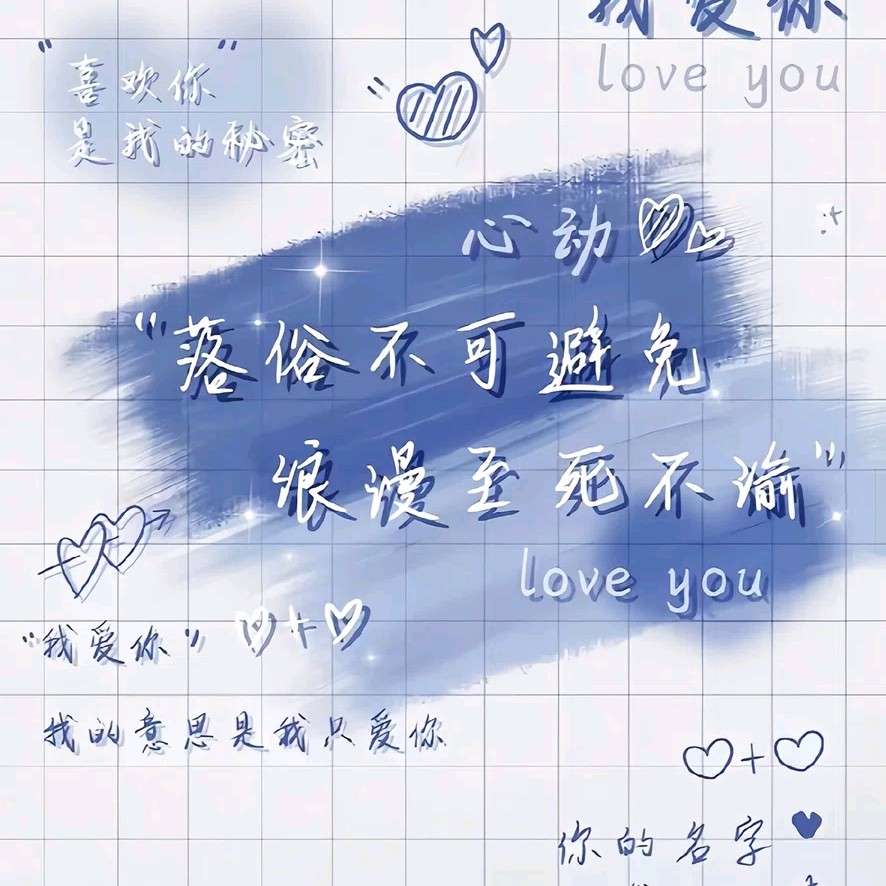 我爱你
love you
"喜欢你"
是我的秘密
心动
"落俗不可避免
浪漫至死不渝"
love you
"我爱你"
我的意思是我只爱你
你的名字